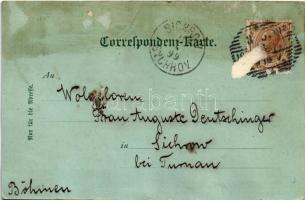 Correspondenz-Karte.
SICHROW
99
An
Nur für die Adresse.
Wolgeboren
Frau Auguste Deutschinger
in
Sichrow
bei Turnau
Böhmen